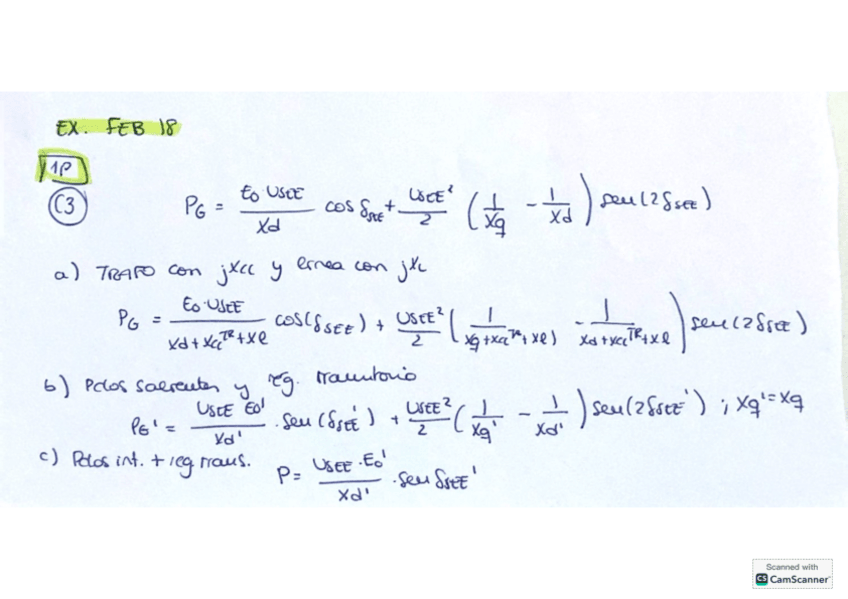 EX. FEB 18
1P
C3
PG = E0·USEE / Xd cos δSEE + USEE² / 2 (1/Xq - 1/Xd) seu(2δSEE)
a) TRAFO con jXcc y linea con jXL
PG = E0·USEE / Xd+XccTR+Xl cos(δSEE) + USEE² / 2 (1 / Xq+XccTR+Xl - 1 / Xd+XccTR+Xl) seu(2δSEE)
b) Polos salientes y reg. transitorio
PG' = USEE E0' / Xd' · seu(δSEE') + USEE² / 2 (1/Xq' - 1/Xd') seu(2δSEE') ; Xq'=Xq
c) Polos int. + reg trans. P = USEE·E0' / Xd' · seu δSEE'
Scanned with
CS CamScanner